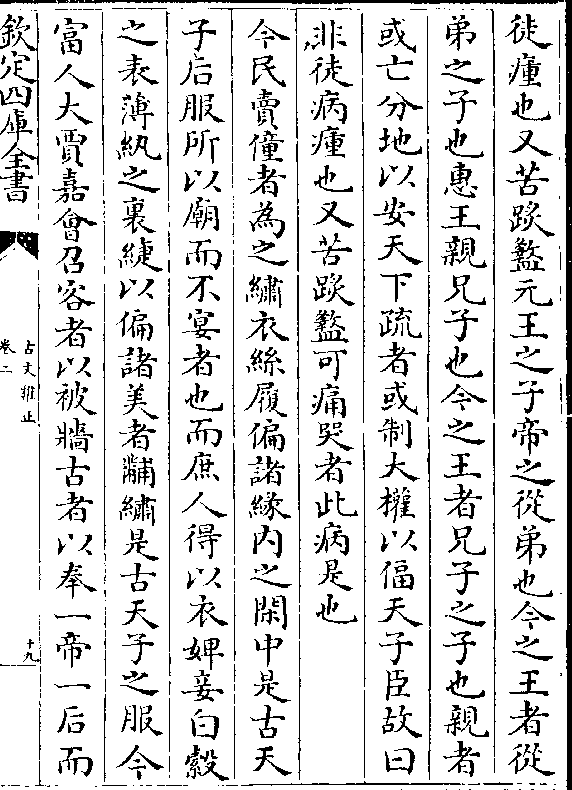 徒瘇也又苦蹊盭元王之子帝之從弟也今之王者從
弟之子也惠王親兄子也今之王者兄子之子也親者
或亡分地以安天下疏者或制大權以偪天子臣故曰
非徒病瘇也又苦蹊盭可痛哭者此病是也
今民賣僮者為之繡衣絲履偏諸緣内之閑中是古天
子后服所以廟而不宴者也而庶人得以衣婢妾白縠
之表薄紈之裏緁以偏諸美者黼繡是古天子之服今
富人大賈嘉會召客者以被牆古者以奉一帝一后而
欽定四庫全書
古文雅正
卷二
十九